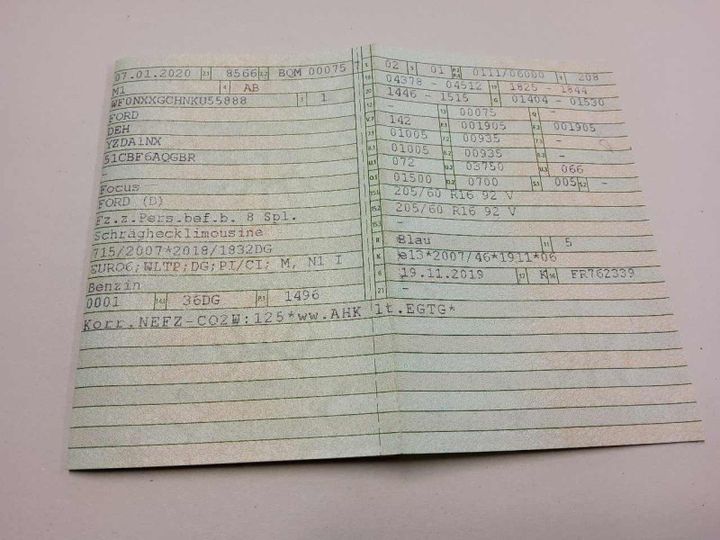 07.01.2020 2.1 8566 2.2 BQM 00075
M1 4 AB
WF0NXXGCHNKU55888 3 1
FORD
DEH
YZDA1NX
51CBF6AQGBR
-
Focus
FORD (D)
Fz.z.Pers.bef.b. 8 Spl.
Schräghecklimousine
715/2007*2018/1832DG
EURO6;WLTP;DG;PI/CI; M, N1 I
Benzin
0001 14.1 36DG P.1 1496
Korr.NEFZ-CO2W:125*ww.AHK lt.EGTG*
L 02 9 01 P.2 P.4 0111/06000 T 208
18 04378 - 04512 19 1825 - 1844
20 1446 - 1515 G 01404 - 01530
12 - 13 00075 Q -
V.7 142 F.1 001905 F.2 001905
7.1 01005 7.2 00935 7.3 -
8.1 01005 8.2 00935 8.3 -
U.1 072 U.2 03750 U.3 066
O.1 01500 O.2 0700 S.1 005 S.2 -
15.1 205/60 R16 92 V
15.2 205/60 R16 92 V
15.3 -
R Blau 11 5
K e13*2007/46*1911*06
6 19.11.2019 17 K 16 FR762339
21 -